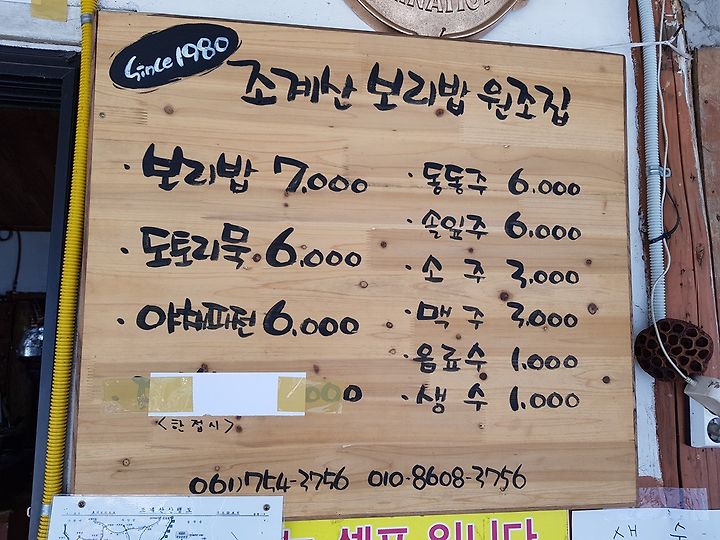 Since 1980
조계산 보리밥 원조집
· 보리밥 7.000
· 도토리묵 6.000
· 야채파전 6.000
000
<한접시>
· 동동주 6.000
· 솔잎주 6.000
· 소주 3.000
· 맥주 3.000
· 음료수 1.000
· 생수 1.000
061)754-3756 010-8608-3756
셀프입니다
생수